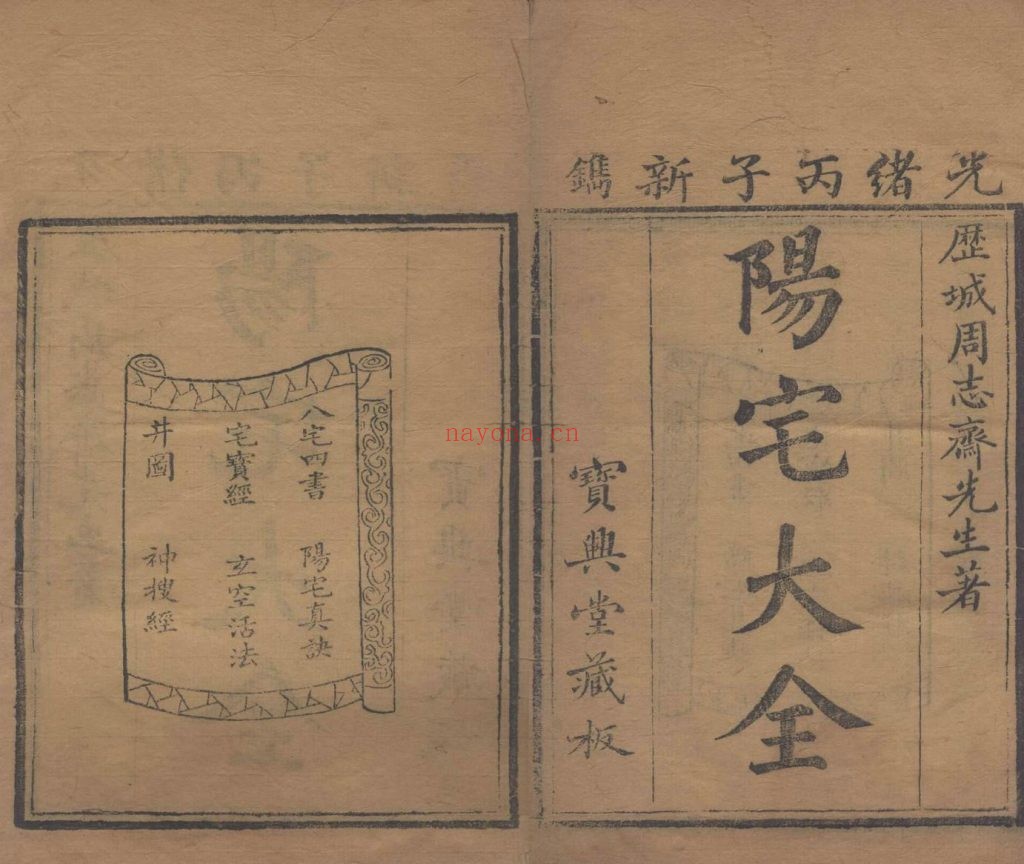 光緒丙子新鐫
歷城周志齋先生著
陽宅大全
寶興堂藏板
八宅四書 陽宅真訣
宅寶經 玄空活法
井圖 神搜經
nayona.cn